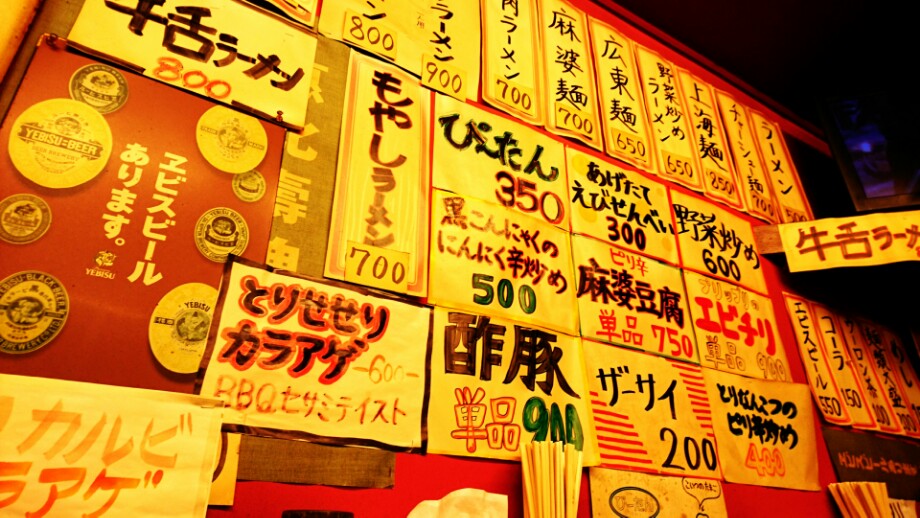 牛舌ラーメン
800
800
ラーメン
900
肉ラーメン
700
麻婆麺
700
広東麺
650
野菜炒め
ラーメン
650
上海麺
チャーシュー麺
700
ラーメン
500
もやしラーメン
700
YEBISU・BEER
ヱビスビール
あります。
YEBISU
ぴーたん
350
あげたて
えびせんべい
300
野菜炒め
600
黒こんにゃくの
にんにく辛炒め
500
ピリ辛
麻婆豆腐
単品 750
エビチリ
単品
とりせせり
カラアゲ
-600-
BBQセサミテイスト
酢豚
単品 900
ザーサイ
200
ピリ辛炒め
400
牛舌ラー
ヱビスビール
550
コーラ
カルビ
ラアゲ